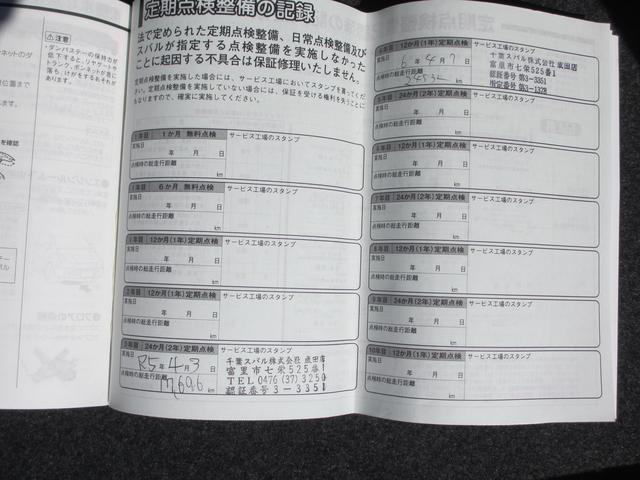 ⚠注意
定期点検整備の記録
法で定められた定期点検整備、日常点検整備及び
スバルが指定する点検整備を実施しなかった
ことに起因する不具合は保証修理いたしません。
定期点検整備を実施した場合には、サービス工場においてスタンプを貰ってください。
定期点検整備を実施していない場合には、保証を受ける権利を失うことに
なりますので、確実に実施してください。
1年目 1か月 無料点検 サービス工場のスタンプ
実施日
年 月 日
点検時の総走行距離
km
1年目 6か月 無料点検 サービス工場のスタンプ
実施日
年 月 日
点検時の総走行距離
km
12か月(1年)定期点検 サービス工場のスタンプ
実施日
年 月 日
点検時の総走行距離
km
12か月(1年)定期点検 サービス工場のスタンプ
実施日
年 月 日
点検時の総走行距離
km
24か月(2年)定期点検 サービス工場のスタンプ
実施日
R5年4月3日
点検時の総走行距離
17,696
千葉スバル株式会社 成田店
富里市七栄525番1
TEL 0476 (37) 3250
認証番号 3-3351
12か月(1年)定期点検 サービス工場のスタンプ
6年4月7日
24532
km
千葉スバル株式会社 成田店
富里市七栄525番1
認証番号 第3-3351
指定番号 第3-1328
24か月(2年)定期点検 サービス工場のスタンプ
実施日
年 月 日
点検時の総走行距離
km
12か月(1年)定期点検 サービス工場のスタンプ
実施日
年 月 日
点検時の総走行距離
km
7年目 24か月(2年)定期点検 サービス工場のスタンプ
実施日
年 月 日
点検時の総走行距離
km
8年目 12か月(1年)定期点検 サービス工場のスタンプ
実施日
年 月 日
点検時の総走行距離
km
9年目 24か月(2年)定期点検 サービス工場のスタンプ
実施日
年 月 日
点検時の総走行距離
km
10年目 12か月(1年)定期点検 サービス工場のスタンプ
実施日
年 月 日
点検時の総走行距離
km